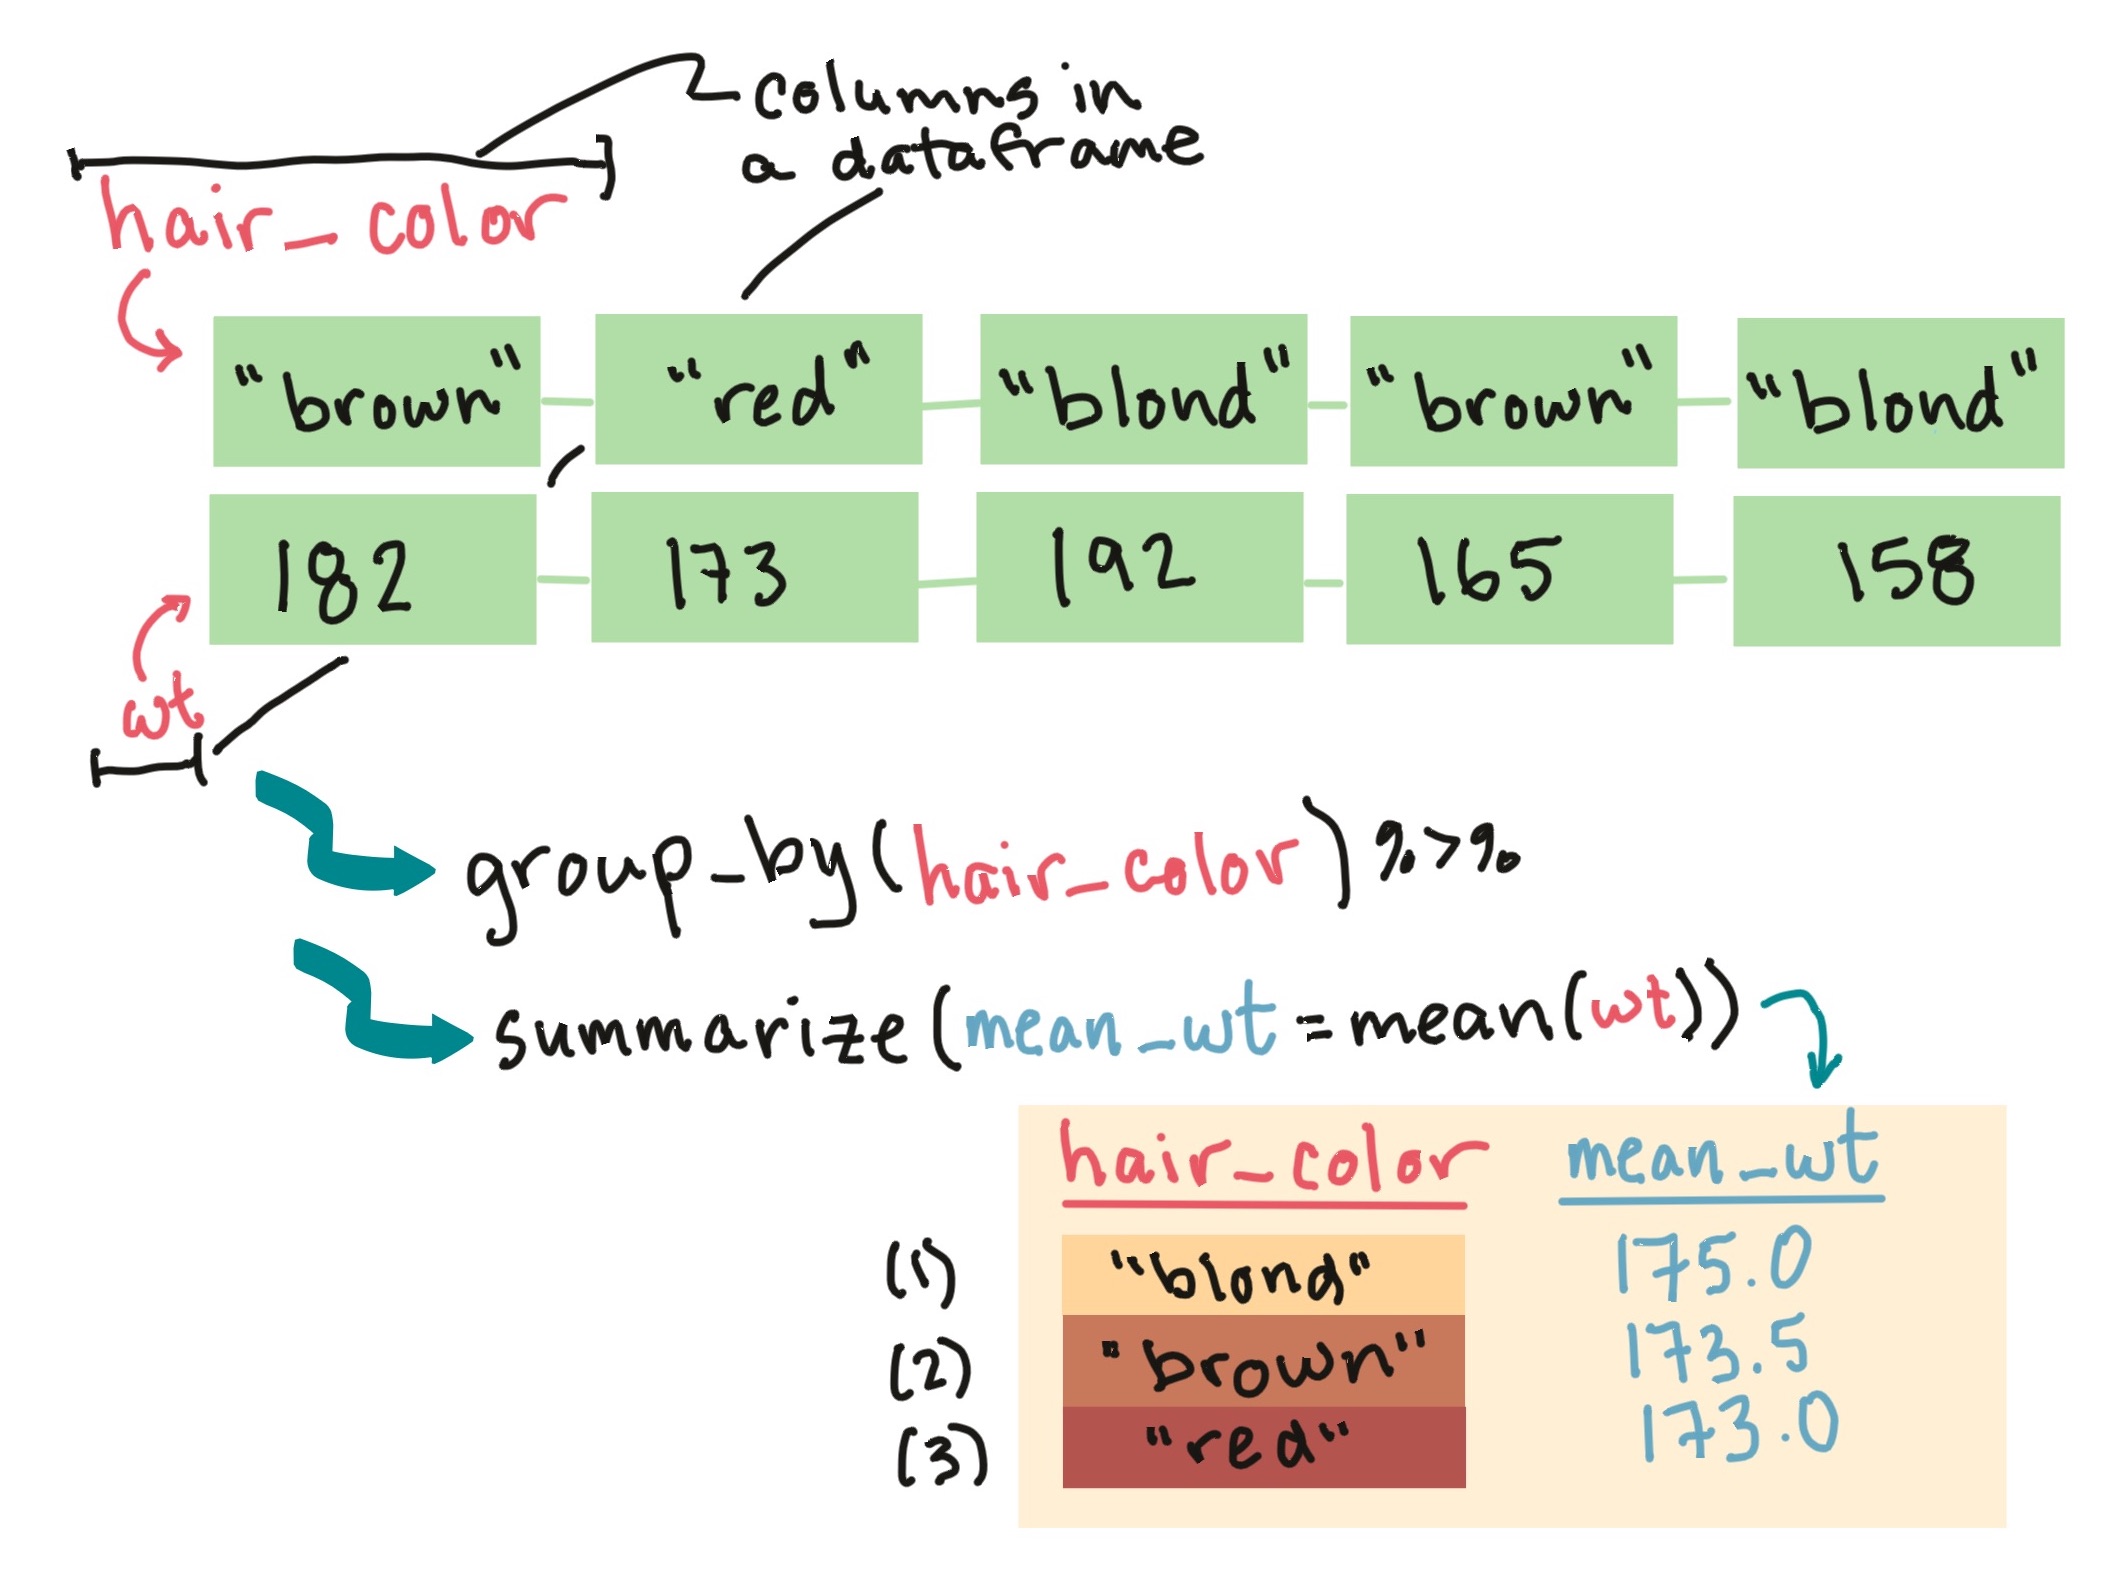 columns in
a dataframe
hair_color
"brown" "red" "blond" "brown" "blond"
182 173 192 165 158
wt
group_by(hair_color) %>%
summarize(mean_wt = mean(wt))
hair_color mean_wt
(1) "blond" 175.0
(2) "brown" 173.5
(3) "red" 173.0